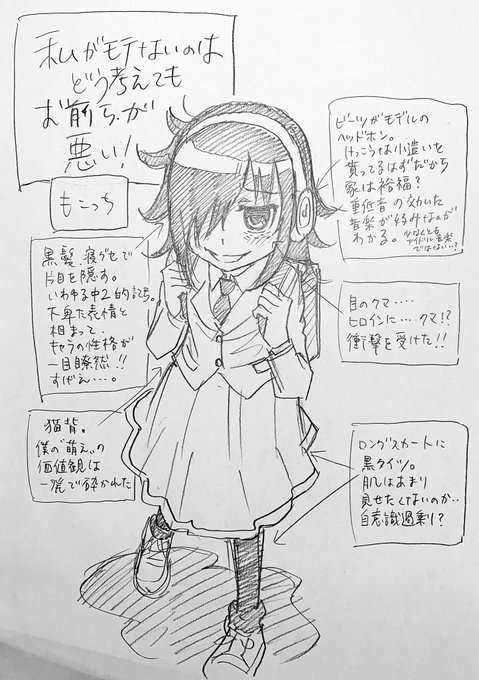 私がモテないのは
どう考えても
お前らが
悪い!
もこっち
ビーツがモデルの
ヘッドホン。
けっこうな小遣いを
貰ってるはずだから
家は裕福?
重低音の効いた
音楽が好みなのが
わかる。少なくとも
アイドル音楽
ではない…?
黒髪、寝グセで
片目を隠す。
いわゆる中2的記号。
下卑た表情と
相まって、
キャラの性格が
一目瞭然!!
すげえ…。
目のクマ‥‥
ヒロインに…クマ!?
衝撃を受けた!!
猫背。
僕の“萌え”の
価値観は
一発で砕かれた
ロングスカートに
黒タイツ。
肌はあまり
見せたくないのか‥
自意識過剰?